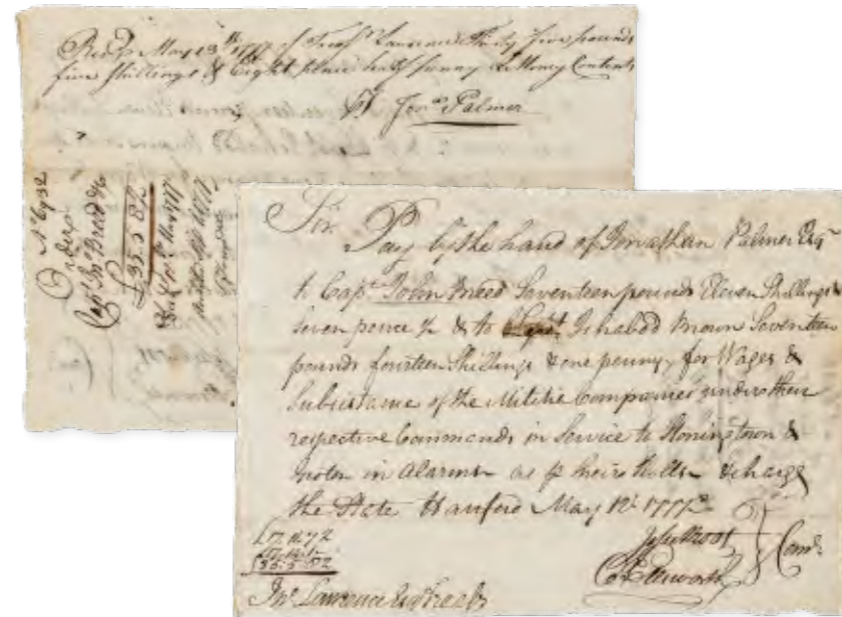 Recd May 13th 1777 of Treasr Lawrence Thirty five pounds
five shillings & Eight pence half penny LMoney Contents
Jona Palmer
Orders
Capt Jno Breed &c
£35.5.8½
Sir
Pay by the hand of Jonathan Palmer Esqr
to Capt John Breed Seventeen pounds Eleven Shillings &
seven pence ½ & to Capt Ichabod Brown Seventeen
pounds fourteen Shillings & one penny for Wages &
Subsistance of the Militie Companies under their
respective Commands in Service to Stonington &
Groton in Alarms as pr their Rolls & charge
the State Hartford May 12th 1777
£17.11.7½
£17.14.1
£35.5.8½
Jesse Root
O Ellsworth
Comtee
Jno Lawrence Esqr Treasr